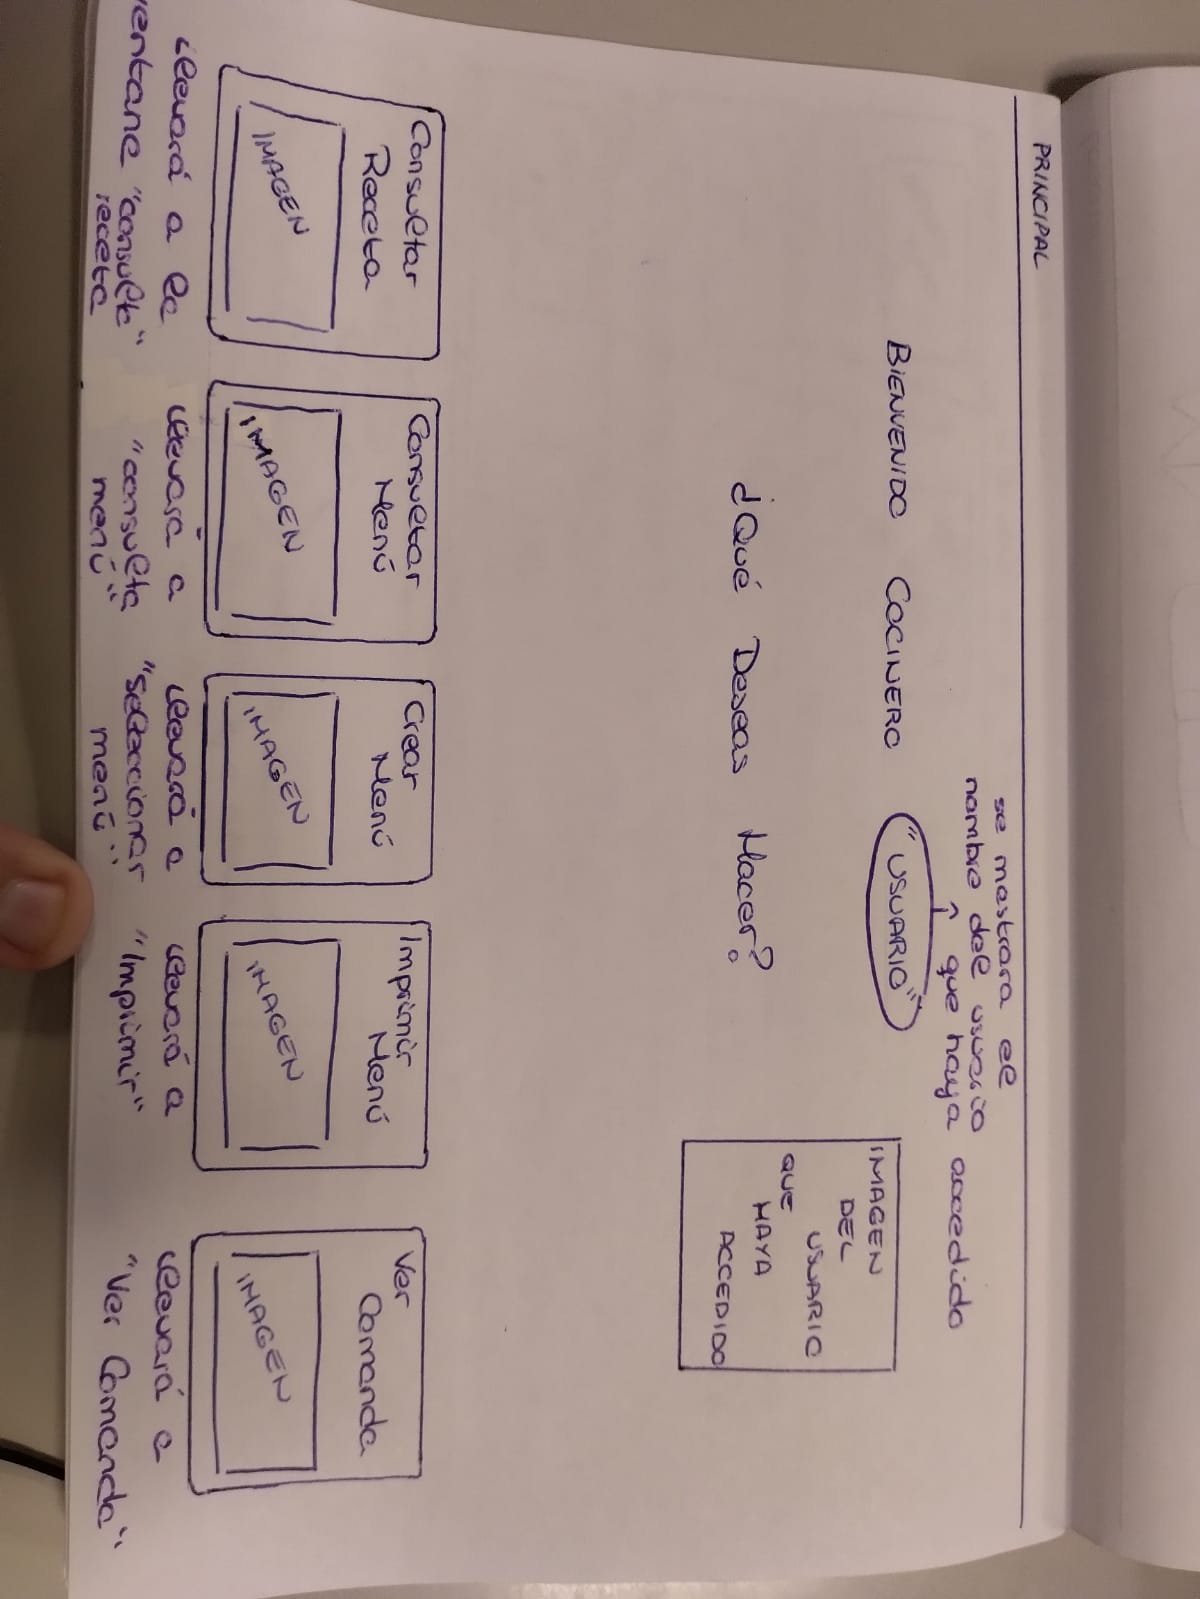 PRINCIPAL
se mostrara el
nombre del usuario
que haya accedido
BIENVENIDO COCINERO "USUARIO"
IMAGEN
DEL
USUARIO
QUE
HAYA
ACCEDIDO
¿Qué Deseas Hacer?
Consultar
Receta
IMAGEN
llevará a la
ventana "consulta"
receta
Consultar
Menú
IMAGEN
llevará a
"consulta
menú"
Crear
Menú
IMAGEN
llevará a
"seleccionar
menú"
Imprimir
Menú
IMAGEN
llevará a
"Imprimir"
Ver
Comanda
IMAGEN
llevará a
"Ver Comanda"